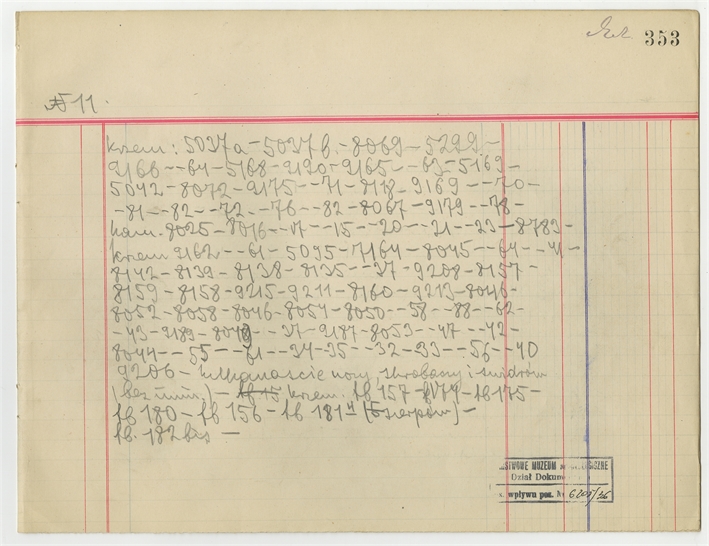 353
11.
krzem: 5037a - 5037b. - 8069 - 5299 -
9166 - - 64 - 5168 - 9190 - 9165 - - 63 - 5169 -
5042 - 8072 - 9175 - - 71 - 8118 - 9169 - - 70 -
- 81 - - 82 - - 72 - - 76 - - 82 - 8067 - 9179 - - 78 -
kam. 8025 - 8016 - - 17 - - 15 - - 20 - - 21 - - 23 - 8783 -
krzem 9162 - - 61 - 5095 - 7164 - 8045 - - 64 - - 41 -
8142 - 8139 - 8138 - 8135 - - 37 - 9208 - 8157 -
8159 - 8158 - 9215 - 9211 - 8160 - 9213 - 8046 -
8052 - 8058 - 8046 - 8054 - 8050 - - 58 - - 88 - - 62 -
- 43 - 9189 - 8048 - - 37 - 9187 - 8053 - - 47 - - 42 -
8044 - - 55 - - 71 - - 34 - 35 - - 32 - 33 - - 56 - - 40
9206 - kilkanaście noży, skrobaczy i świdrów
(bez num.) - krzem. fb 157 - - fb 175 -
fb 180 - fb 156 - fb 181 (5 sierpów) -
fb. 182 bis -
STWOWE MUZEUM GICZNE
Dział Dokum
wpływu poz. № 6205/36